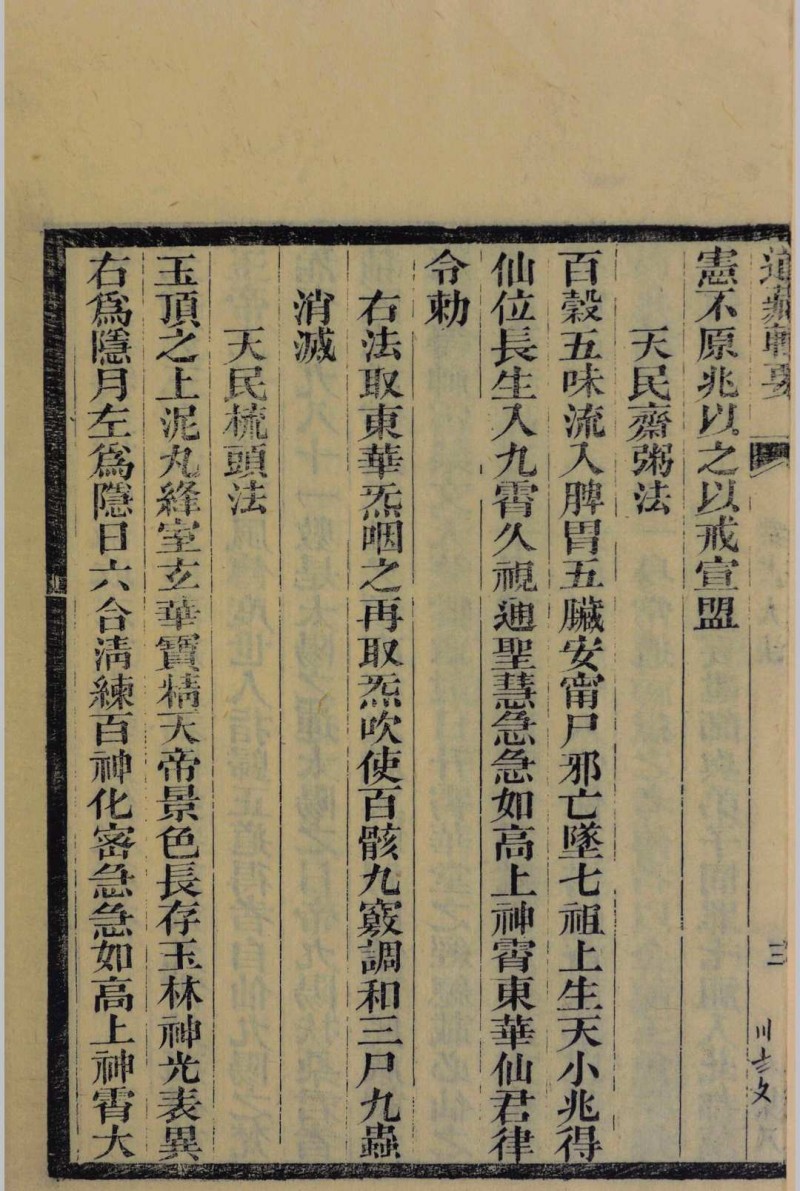 道藏輯要
三
憲不原兆以之以戒宣盟
天民齋粥法
百穀五味流入脾胃五臟安甯尸邪亡墜七祖上生天小兆得
仙位長生入九霄久視通聖慧急急如高上神霄東華仙君律
令勅
右法取東華炁咽之再取炁吹使百骸九竅調和三尸九蟲
消滅
天民梳頭法
玉頂之上泥丸絳室玄華寶精天帝景色長存玉林神光表異
右爲隱月左爲隱日六合淸練百神化密急急如高上神霄大